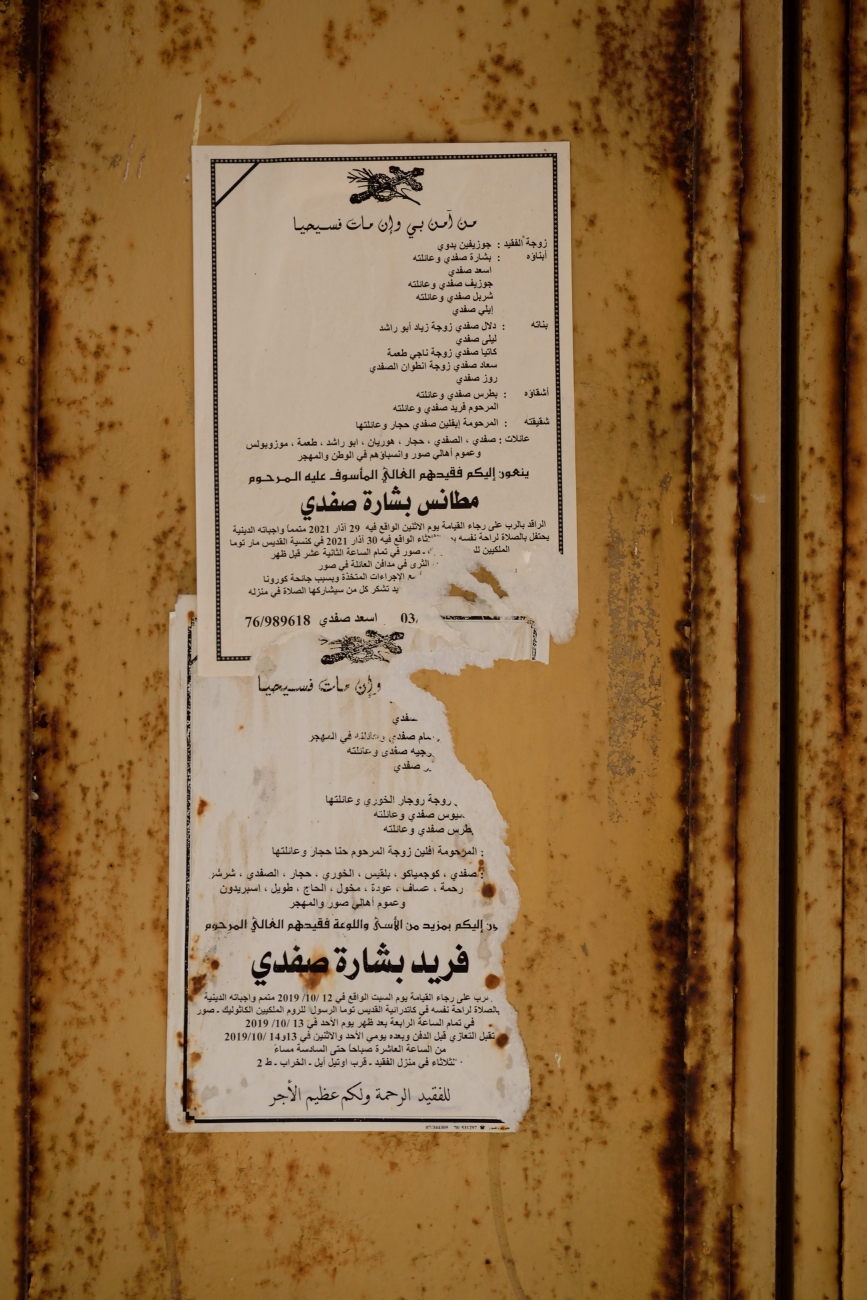 من آمن بي وإن مات فسيحيا
زوجة الفقيد : جوزيفين بدوي
أبناؤه : بشارة صفدي وعائلته
اسعد صفدي
جوزيف صفدي وعائلته
شربل صفدي وعائلته
إيلي صفدي
بناته : دلال صفدي زوجة زياد أبو راشد
ليلى صفدي
كاتيا صفدي زوجة ناجي طعمة
سعاد صفدي زوجة انطوان الصفدي
روز صفدي
أشقاؤه : بطرس صفدي وعائلته
المرحوم فريد صفدي وعائلته
شقيقته : المرحومة إيفلين صفدي حجار وعائلتها
عائلات : صفدي ، الصفدي ، حجار ، هوريان ، ابو راشد ، طعمة ، موزوبولس
وعموم أهالي صور وانسباؤهم في الوطن والمهجر
ينعون إليكم فقيدهم الغالي المأسوف عليه المرحوم
مطانس بشارة صفدي
الراقد بالرب على رجاء القيامة يوم الاثنين الواقع فيه 29 آذار 2021 متمماً واجباته الدينية
يحتفل بالصلاة لراحة نفسه الواقع فيه 30 آذار 2021 في كنسية القديس مار توما
الملكيين - صور في تمام الساعة الثانية عشر قبل ظهر
الثرى في مدافن العائلة في صور
الإجراءات المتخذة وبسبب جائحة كورونا
تشكر كل من سيشاركها الصلاة في منزله
03 اسعد صفدي 76/989618
وإن مات فسيحيا
صفدي
صفدي وعائلته في المهجر
وعائلته
صفدي
زوجة روجار الخوري وعائلتها
صفدي وعائلته
طرس صفدي وعائلته
: المرحومة افلين زوجة المرحوم حنا حجار وعائلتها
: صفدي ، كوجمياكو ، بلقيس ، الخوري ، حجار ، الصفدي ، شرشر
رحمة ، عساف ، عودة ، مخول ، الحاج ، طويل ، اسبريدون
وعموم أهالي صور والمهجر
إليكم بمزيد من الأسى واللوعة فقيدهم الغالي المرحوم
فريد بشارة صفدي
على رجاء القيامة يوم السبت الواقع في 12 /10/ 2019 متمم واجباته الدينية
بالصلاة لراحة نفسه في كاتدرائية القديس توما الرسول للروم الملكيين الكاثوليك - صور
في تمام الساعة الرابعة بعد ظهر يوم الأحد في 13 /10/ 2019
تقبل التعازي قبل الدفن وبعده يومي الأحد والاثنين في 13و14 /2019/10
من الساعة العاشرة صباحاً حتى السادسة مساءً
في منزل الفقيد - قرب اوتيل أبل - الخراب - ط 2
للفقيد الرحمة ولكم عظيم الأجر